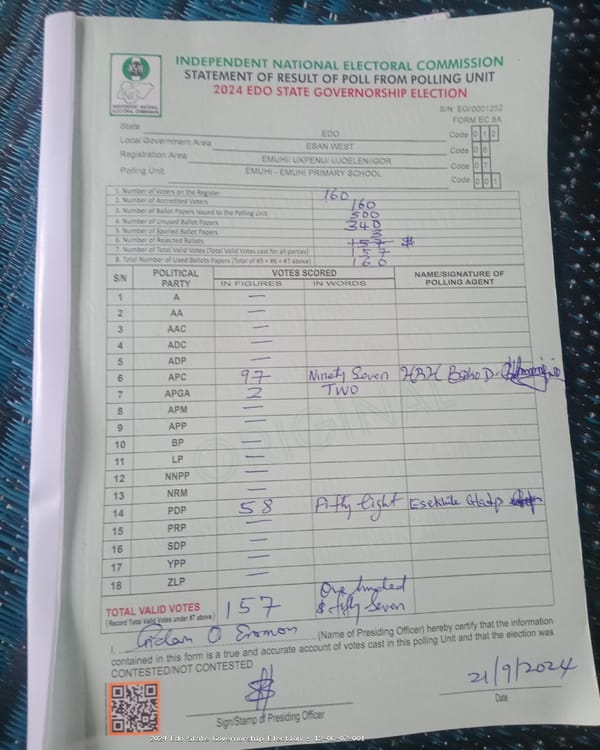 INDEPENDENT NATIONAL ELECTORAL COMMISSION
STATEMENT OF RESULT OF POLL FROM POLLING UNIT
2024 EDO STATE GOVERNORSHIP ELECTION
INDEPENDENT NATIONAL ELECTORAL COMMISSION
S/N: EG/0001252
FORM EC 8A
State EDO Code 0 1 2
Local Government Area ESAN WEST Code 0 6
Registration Area EMUHI/ UKPENU/ UJOELEN/IGOR Code 0 7
Polling Unit EMUHI - EMUHI PRIMARY SCHOOL Code 0 0 1
1. Number of Voters on the Register 160
2. Number of Accredited Voters 160
3. Number of Ballot Papers Issued to the Polling Unit 500
4. Number of Unused Ballot Papers 340
5. Number of Spoiled Ballot Papers
6. Number of Rejected Ballots
7. Number of Total Valid Votes (Total Valid Votes cast for all parties) 157
8. Total Number of Used Ballots Papers (Total of #5 + #6 + #7 above) 160
S/N POLITICAL PARTY VOTES SCORED NAME/SIGNATURE OF POLLING AGENT
IN FIGURES IN WORDS
1 A —
2 AA —
3 AAC —
4 ADC —
5 ADP —
6 APC 97 Ninety Seven
7 APGA 2 TWO
8 APM —
9 APP —
10 BP —
11 LP —
12 NNPP —
13 NRM —
14 PDP 58 Fifty Eight
15 PRP —
16 SDP —
17 YPP —
18 ZLP —
TOTAL VALID VOTES 157 One hundred
(Record Total Valid Votes under #7 above) & fifty Seven
I, (Name of Presiding Officer) hereby certify that the information
contained in this form is a true and accurate account of votes cast in this polling Unit and that the election was
CONTESTED/NOT CONTESTED
21/9/2024
Sign/Stamp of Presiding Officer Date
2024 Edo State Governorship Election - 12-06-07-001